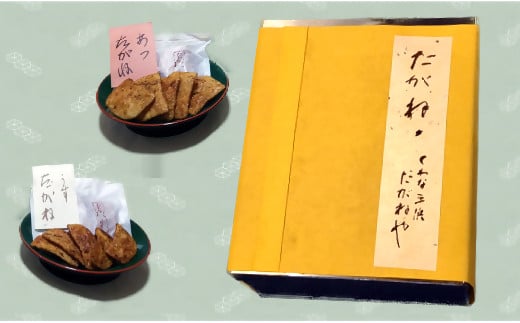 あつ
たがね
うす
たがね
たがね・
くわな三浜
たがねや